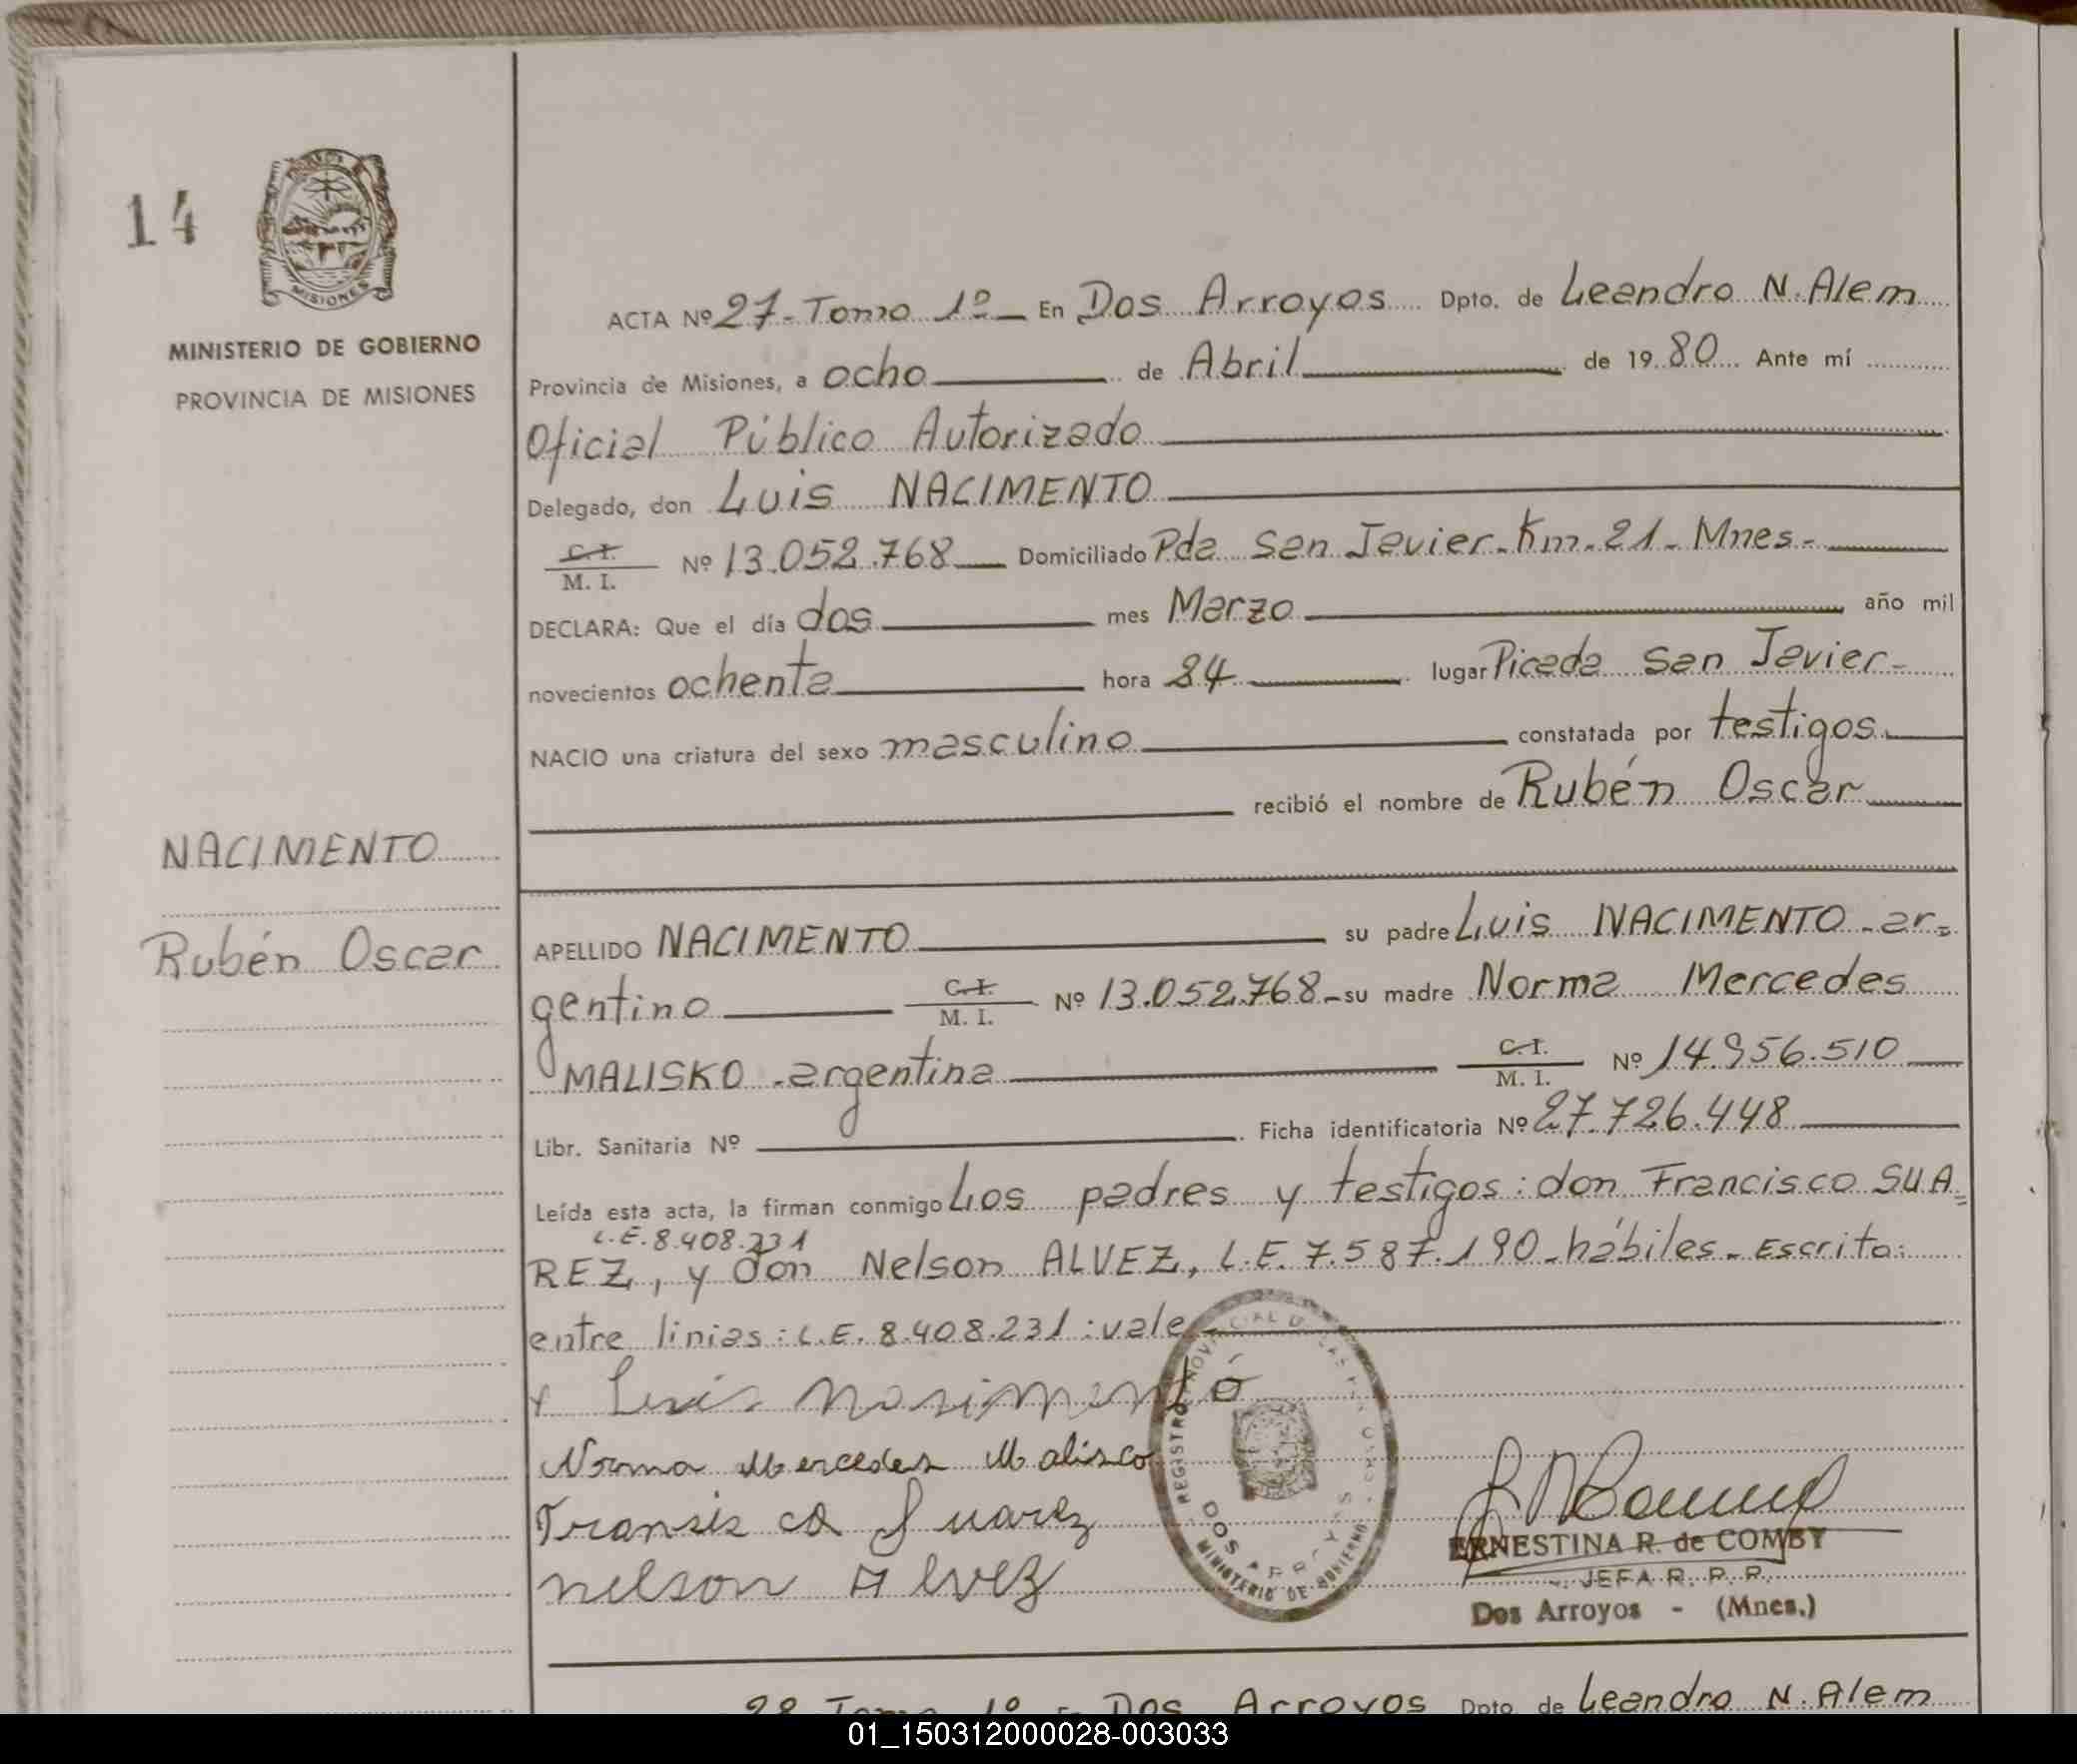 14
MISIONES
MINISTERIO DE GOBIERNO
PROVINCIA DE MISIONES
NACIMIENTO
Rubén Oscar
ACTA Nº 27 - Tomo 1º - En Dos Arroyos Dpto. de Leandro N. Alem
Provincia de Misiones, a ocho de Abril de 19 80 Ante mí
Oficial Público Autorizado
Delegado, don Luis NACIMENTO
C. I.
M. I. Nº 13.052.768 Domiciliado Pda San Javier - Km. 21 - Mnes -
DECLARA: Que el día dos mes Marzo año mil
novecientos ochenta hora 24 lugar Picada San Javier -
NACIO una criatura del sexo masculino constatada por testigos
recibió el nombre de Rubén Oscar
APELLIDO NACIMENTO su padre Luis NACIMENTO - ar=
gentino C. I. M. I. Nº 13.052.768 - su madre Norma Mercedes
MALISKO - argentina C. I. M. I. Nº 14.956.510
Libr. Sanitaria Nº Ficha identificatoria Nº 27.726.448
Leída esta acta, la firman conmigo Los padres y testigos: don Francisco SUA=
L.E. 8.408.231
REZ, y don Nelson ALVEZ, L.E. 7.587.190 - hábiles - Escrito:
entre linias: L.E. 8.408.231: vale
Luis Nasimento
Norma Mercedes Malisco
Fransisco Suarez
nelson Alvez
REGISTRO PROVINCIAL DE LAS PERSONAS
DOS ARROYOS
MINISTERIO DE GOBIERNO
ERNESTINA R. de COMBY
JEFA R. P. P.
Dos Arroyos - (Mnes.)
28 Tomo 1º - Dos Arroyos Dpto. de Leandro N. Alem
01_150312000028-003033